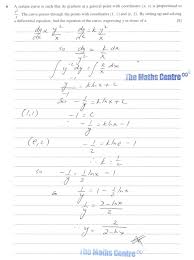 6 A certain curve is such that its gradient at a general point with coordinates (x, y) is proportional to
y²/x. The curve passes through the points with coordinates (1, 1) and (e, 2). By setting up and solving
a differential equation, find the equation of the curve, expressing y in terms of x.
dy/dx ∝ y²/x dy/dx = k y²/x
The Maths Centre
∫ y⁻² dy = ∫ k/x dx
-1/y = k ln x + c
(1,1) -1 = c
-1/y = k ln x - 1
(e,2) -1/2 = k ln e - 1
k = 1/2
so -1/y = 1/2 ln x - 1
1/y = 1 - 1/2 ln x
1/y = (2 - ln x)/2
y = 2/(2 - ln x)
The Maths Centre